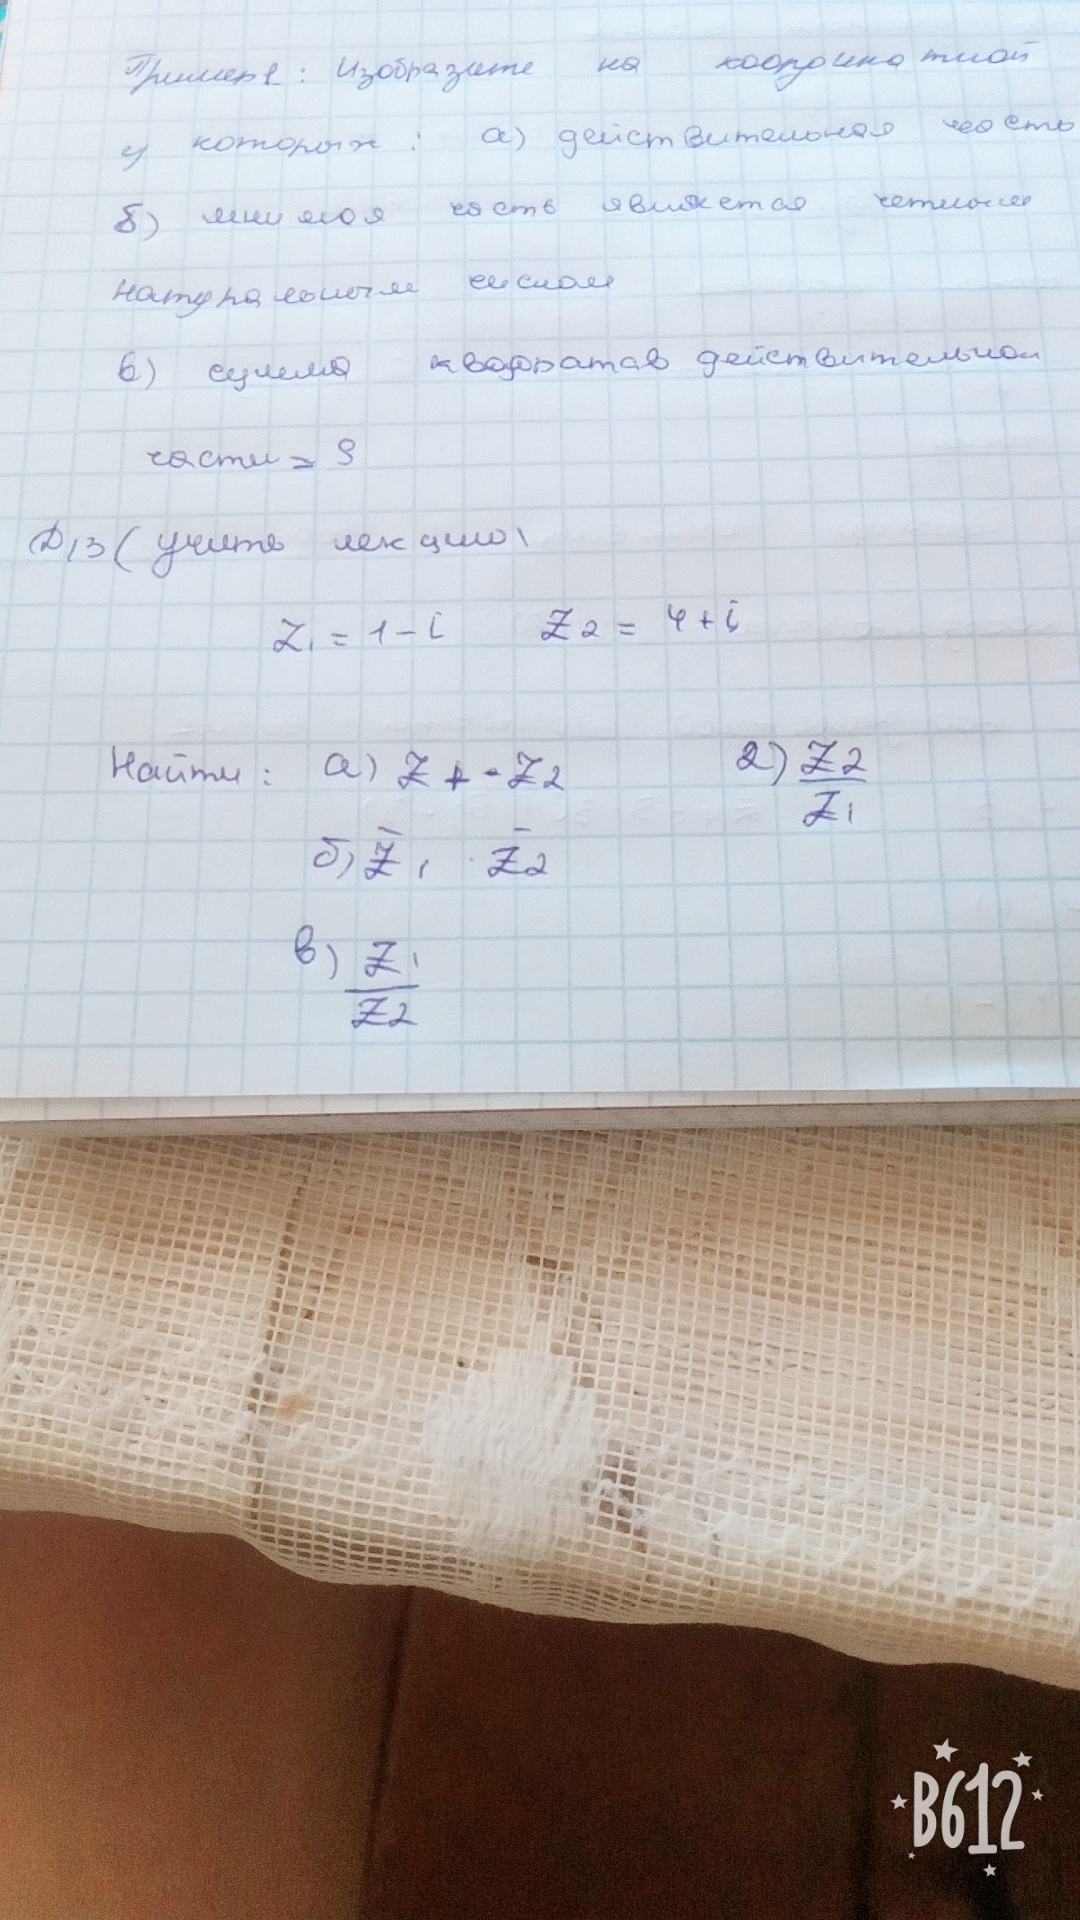 Пример 1: Изобразите на координатной
у которых: а) действительная часть
б) мнимая часть является четным
натуральным числом
в) сумма квадратов действительной
части = 9
Д/З (учить лекцию)
Z₁ = 1 - i Z₂ = 4 + i
Найти: а) Z₁ · Z₂ г) Z₂ / Z₁
б) Z̄₁ · Z̄₂
в) Z₁ / Z₂
B612